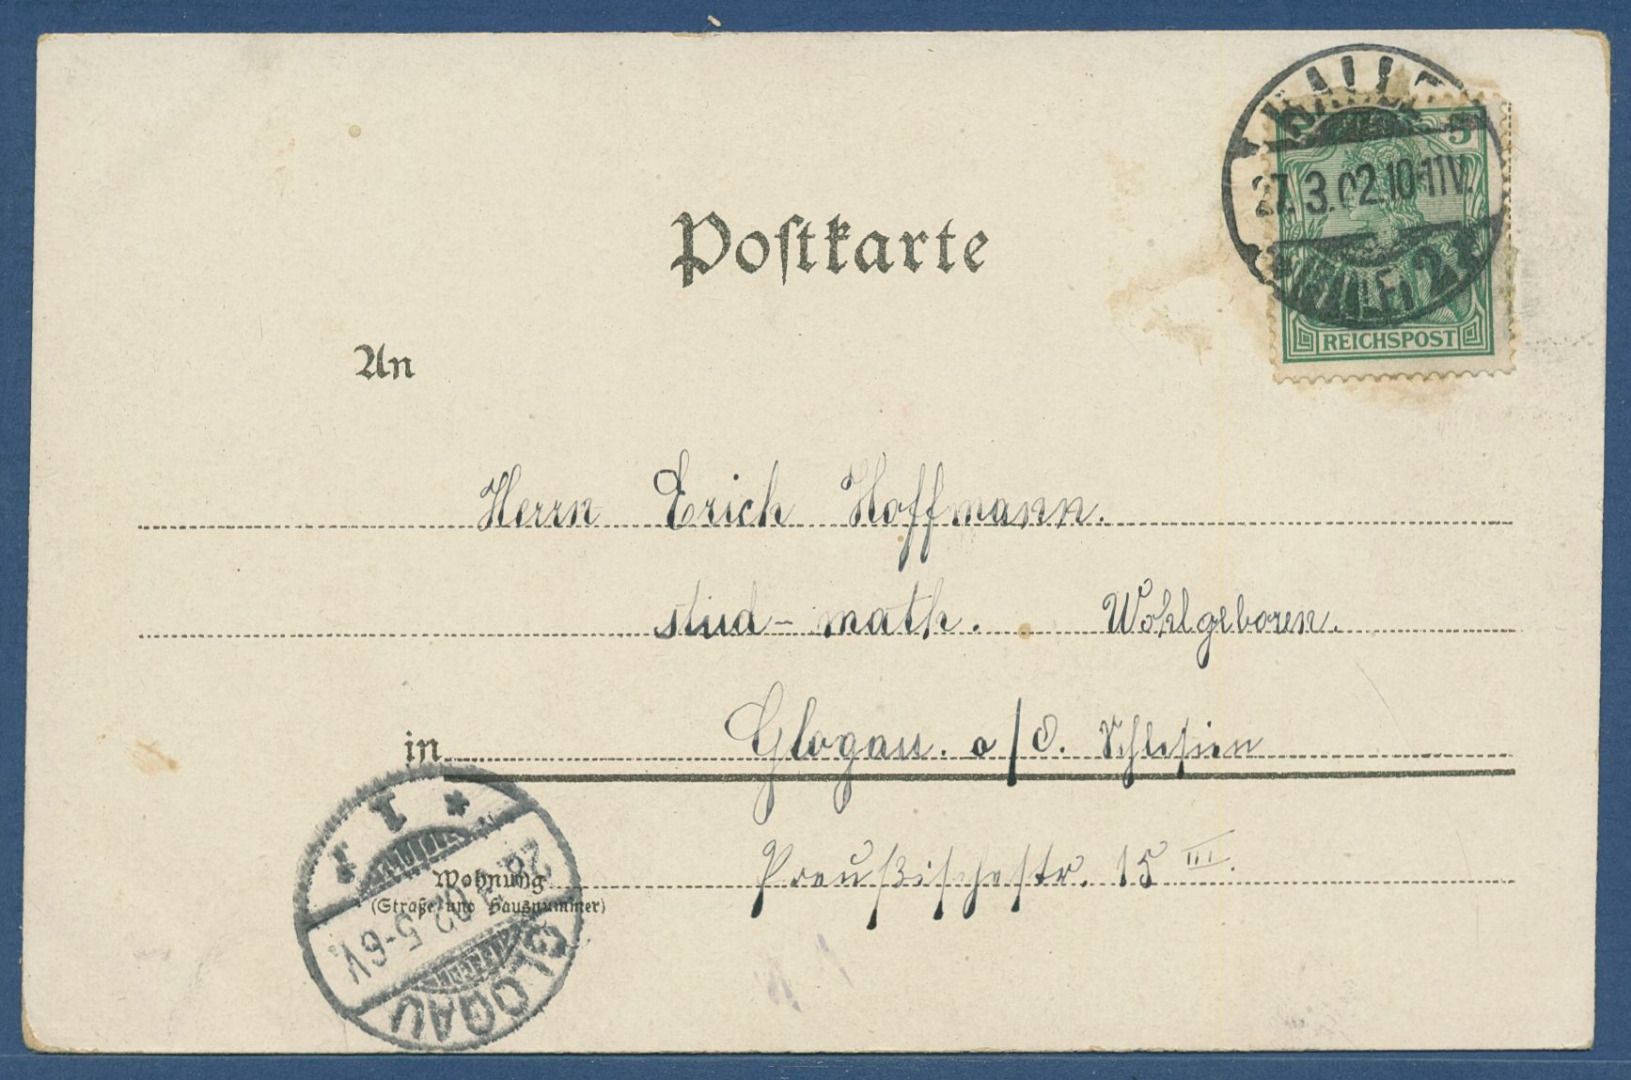 HALLE
5
27.3.02.10-11V.
* (SAALE) 2 *
REICHSPOST
Postkarte
An
Herrn Erich Hoffmann.
stud-math. Wohlgeboren.
in Glogau. a/O. Schlesien
Wohnung Preußischestr. 15 III.
(Straße und Hausnummer)
* 1 1
02.5-6V.
GLOGAU